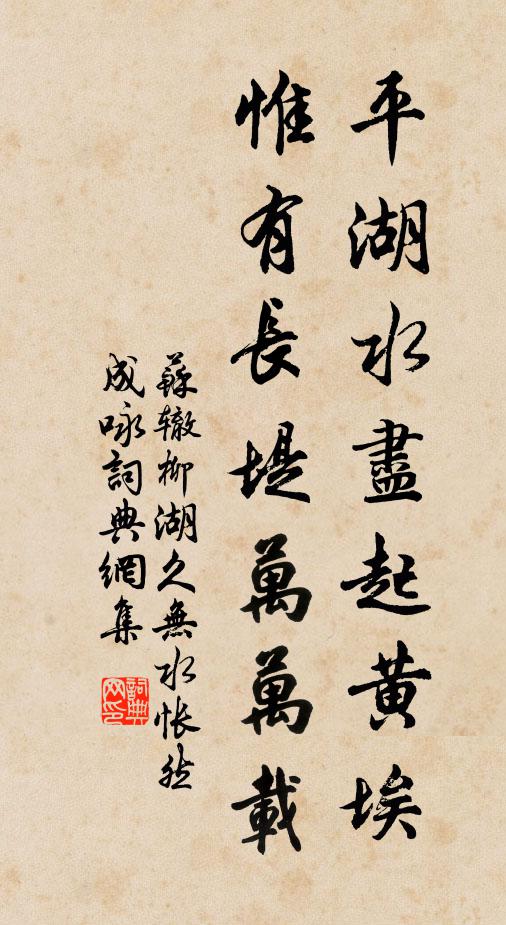 平湖水盡起黄埃
惟有長堤萬萬載
蘇辙柳湖久無水悵然
成咏詞典網集
詞典网印